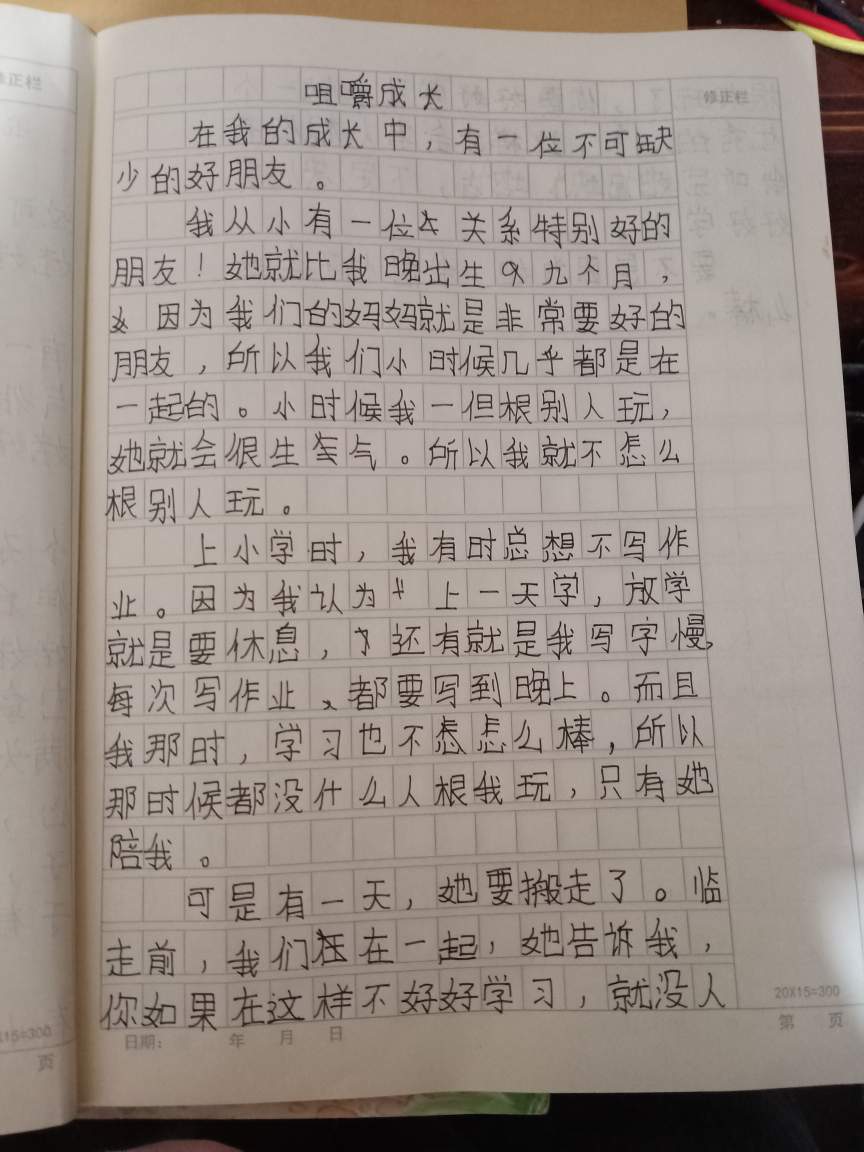 修正栏
咀嚼成长
修正栏
在我的成长中，有一位不可缺
少的好朋友。
我从小有一位关系特别好的
朋友！她就比我晚出生九个月，
因为我们的妈妈就是非常要好的
朋友，所以我们小时候几乎都是在
一起的。小时候我一但根别人玩，
她就会很生气。所以我就不怎么
根别人玩。
上小学时，我有时总想不写作
业。因为我认为上一天学，放学
就是要休息，还有就是我写字慢，
每次写作业都要写到晚上。而且
我那时，学习也不怎么棒，所以
那时候都没什么人根我玩，只有她
陪我。
可是有一天，她要搬走了。临
走前，我们在一起，她告诉我，
你如果在这样不好好学习，就没人
20X15=300
第 页
日期： 年 月 日
X15=300
页